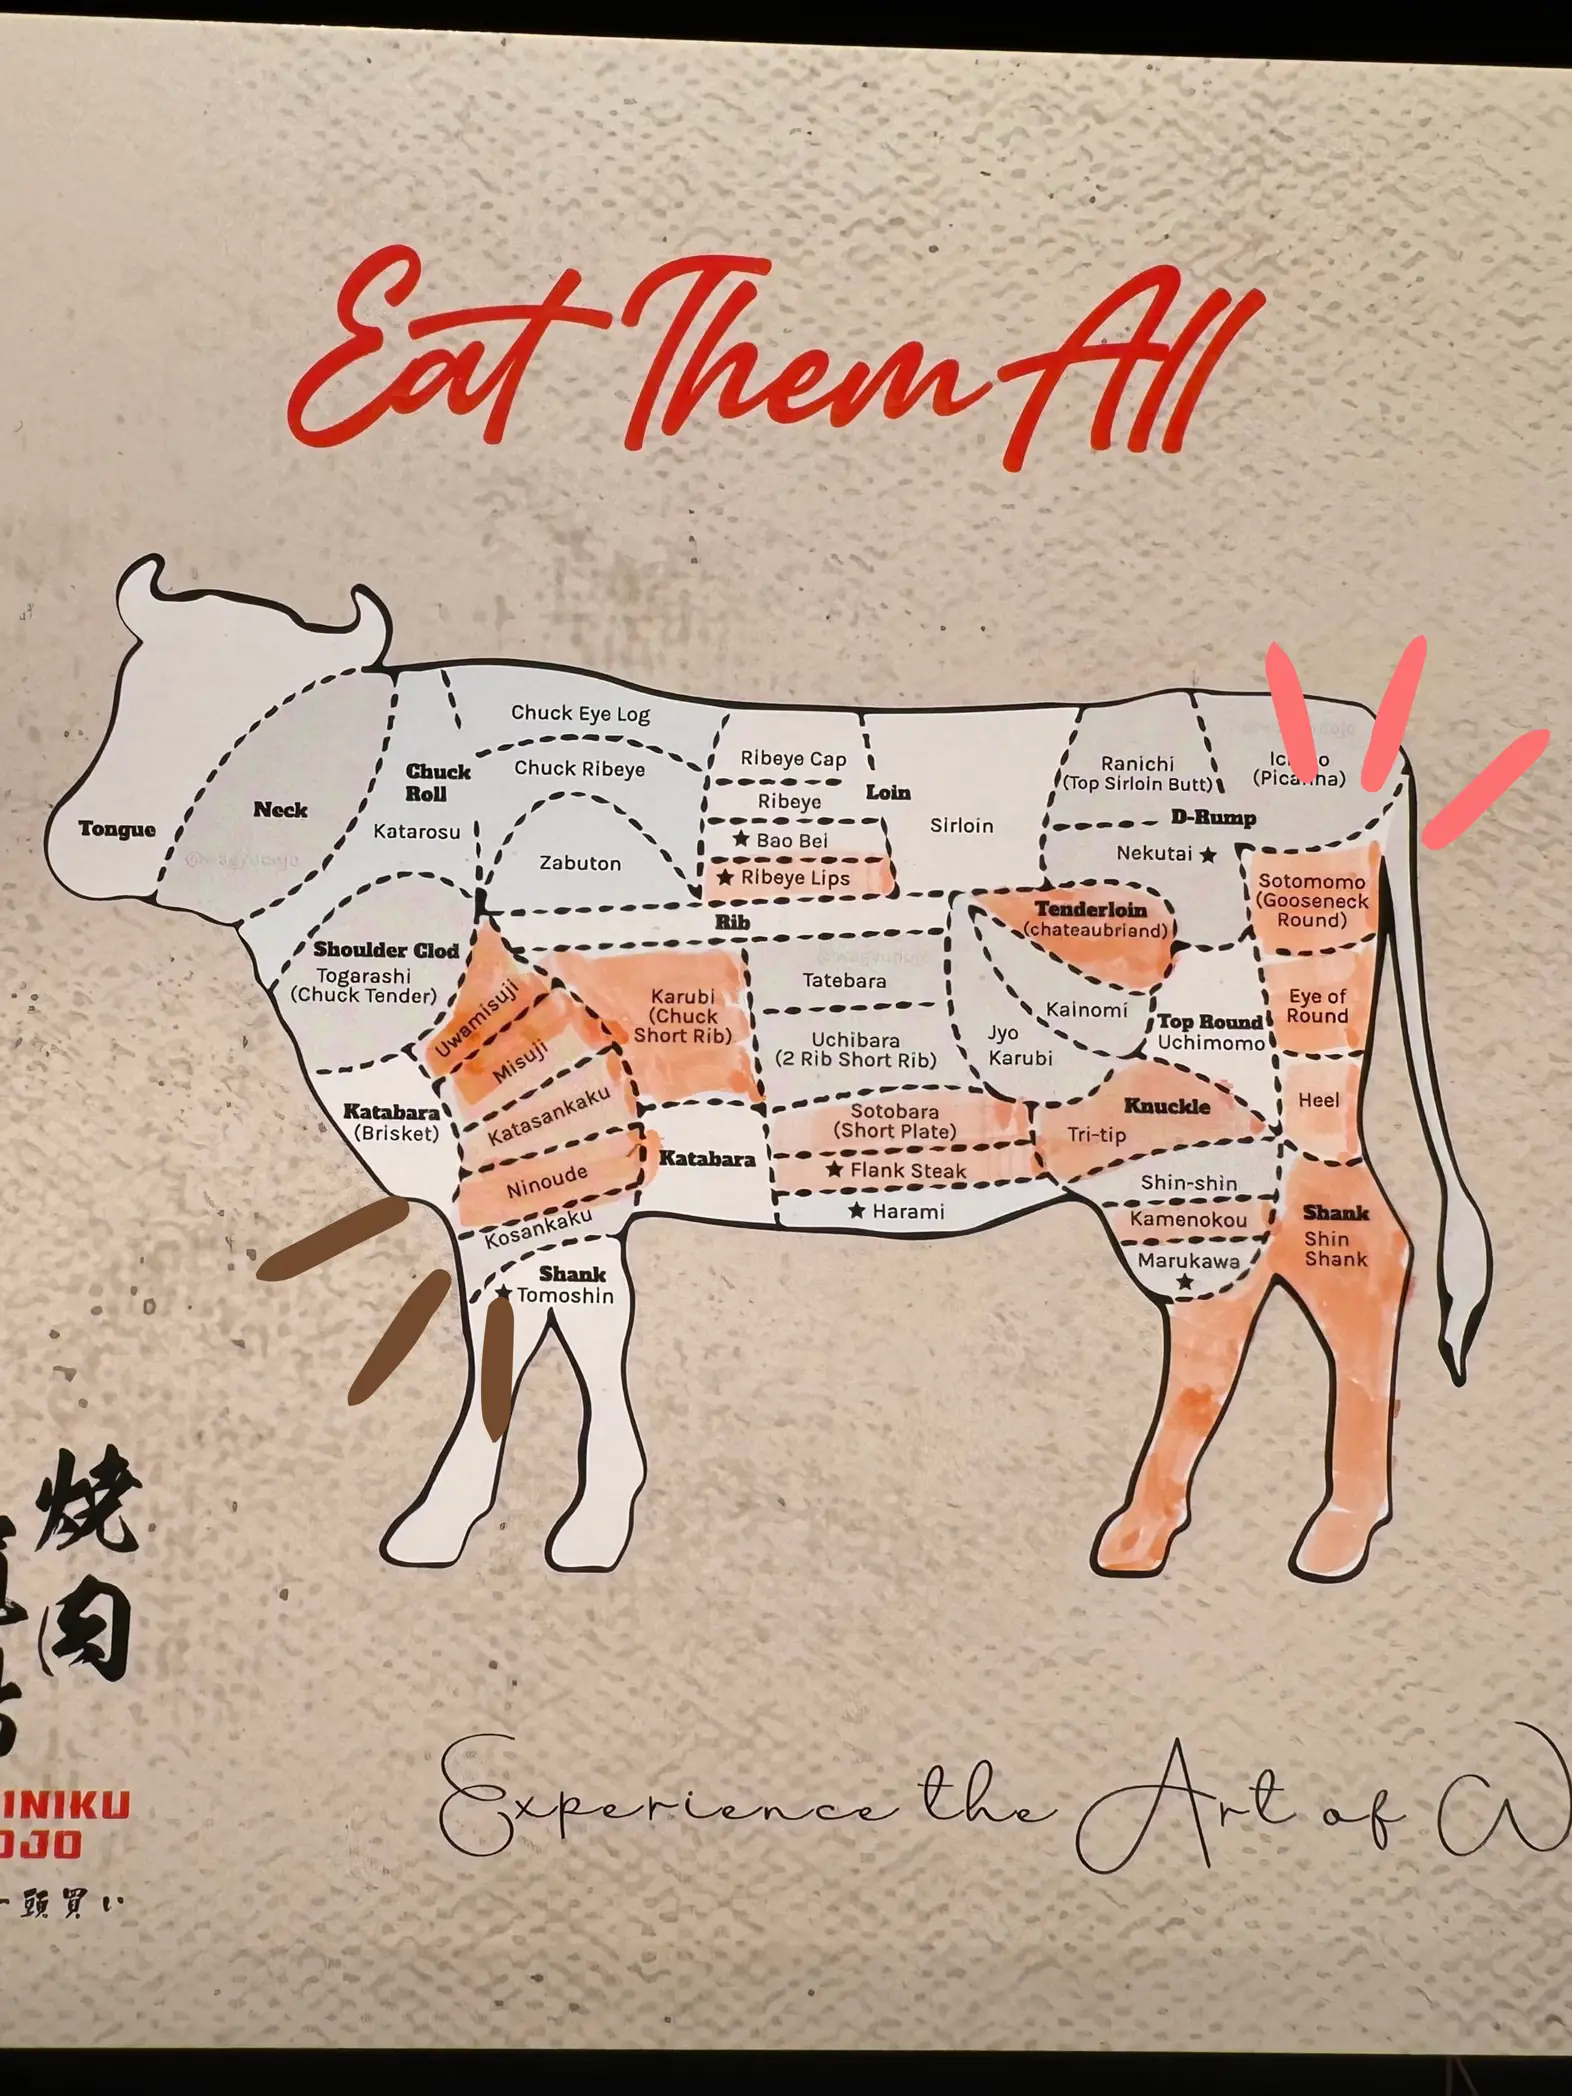 Eat Them All
Chuck Eye Log
Chuck Ribeye
Chuck
Roll
Katarosu
Neck
Tongue
Zabuton
Ribeye Cap
Ribeye
★ Bao Bei
★ Ribeye Lips
Loin
Sirloin
Ranichi
(Top Sirloin Butt)
(Picanha)
D-Rump
Nekutai ★
Rib
Tenderloin
(chateaubriand)
Sotomomo
(Gooseneck
Round)
Shoulder Clod
Togarashi
(Chuck Tender)
Uwamisuji
Misuji
Karubi
(Chuck
Short Rib)
@wagyudojo
@wagyudojo
Tatebara
Uchibara
(2 Rib Short Rib)
Kainomi
Jyo
Karubi
Top Round
Uchimomo
Eye of
Round
Heel
Katabara
(Brisket)
Katasankaku
Ninoude
Kosankaku
Katabara
Sotobara
(Short Plate)
★ Flank Steak
★ Harami
Knuckle
Tri-tip
Shin-shin
Kamenokou
Marukawa
★
Shank
Shin
Shank
Shank
★ Tomoshin
焼
肉
INIKU
OJO
一頭買い
Experience the Art of W